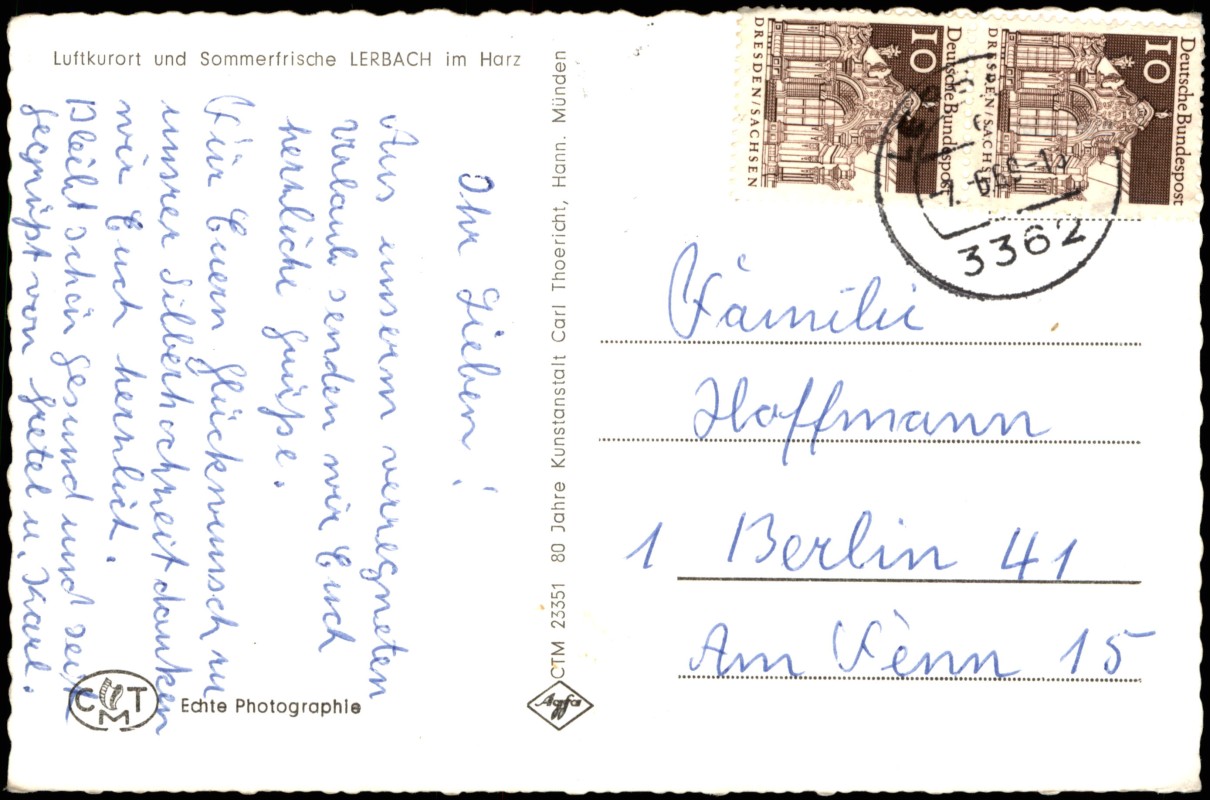 Luftkurort und Sommerfrische LERBACH im Harz
Ihr Lieben!
Aus unserm verregneten
Urlaub senden wir Euch
herzliche Grüße.
Für Euern Glückwunsch zu
unsrer Silberhochzeit danken
wir Euch herzlich.
Bleibt schön gesund und seit
gegrüßt von Gretel u. Karl.
CMT
Echte Photographie
CTM 23351 80 Jahre Kunstanstalt Carl Thoericht, Hann. Münden
Agfa
DRESDEN/SACHSEN
10
Deutsche Bundespost
DRESDEN/SACHSEN
10
Deutsche Bundespost
3362
Familie
Hoffmann
1 Berlin 41
Am Fenn 15